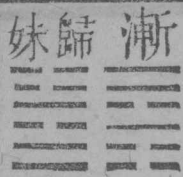 漸 歸妹